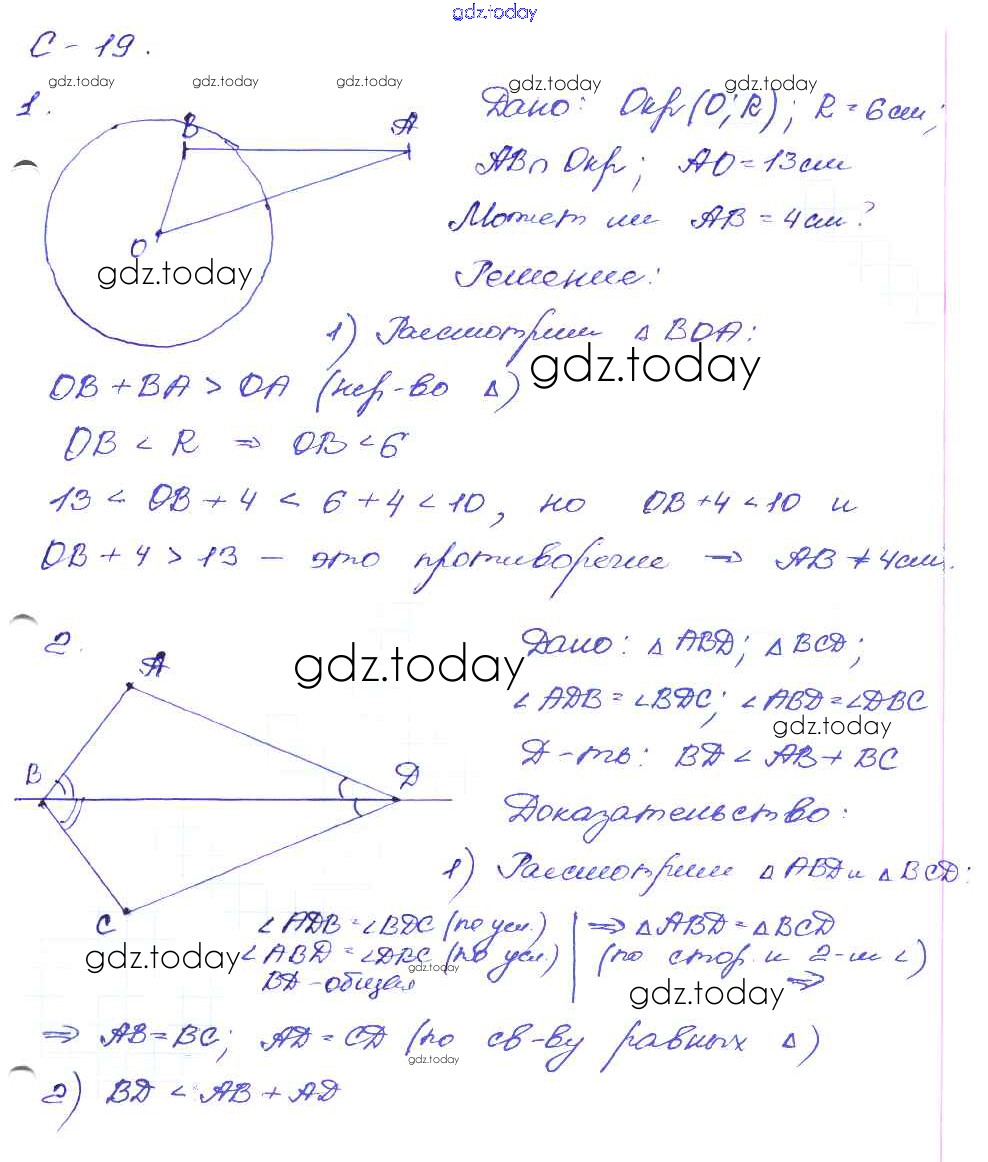 gdz.today
С-19.
gdz.today gdz.today gdz.today gdz.today gdz.today
1.
В
А
О
gdz.today
Дано: Окр(О; R); R = 6см;
АВ∩Окр; АО = 13см
Может ли АВ = 4см?
Решение:
1) Рассмотрим △ВОА:
gdz.today
ОВ + ВА > ОА (нер-во △)
ОВ < R ⇒ ОВ < 6
13 < ОВ + 4 < 6 + 4 < 10, но ОВ + 4 < 10 и
ОВ + 4 > 13 – это противоречие ⇒ АВ ≠ 4см.
2.
gdz.today
А
В
D
С
Дано: △ABD; △BCD;
∠ADB = ∠BDC; ∠ABD = ∠DBC
gdz.today
Д-ть: BD < AB + BC
Доказательство:
1) Рассмотрим △ABD и △BCD:
∠ADB = ∠BDC (по усл.) | ⇒ △ABD = △BCD
∠ABD = ∠DBC (по усл.) | (по стор. и 2-м ∠)
BD – общая | ⇒
gdz.today gdz.today gdz.today
⇒ AB = BC; AD = CD (по св-ву равных △)
gdz.today
2) BD < AB + AD